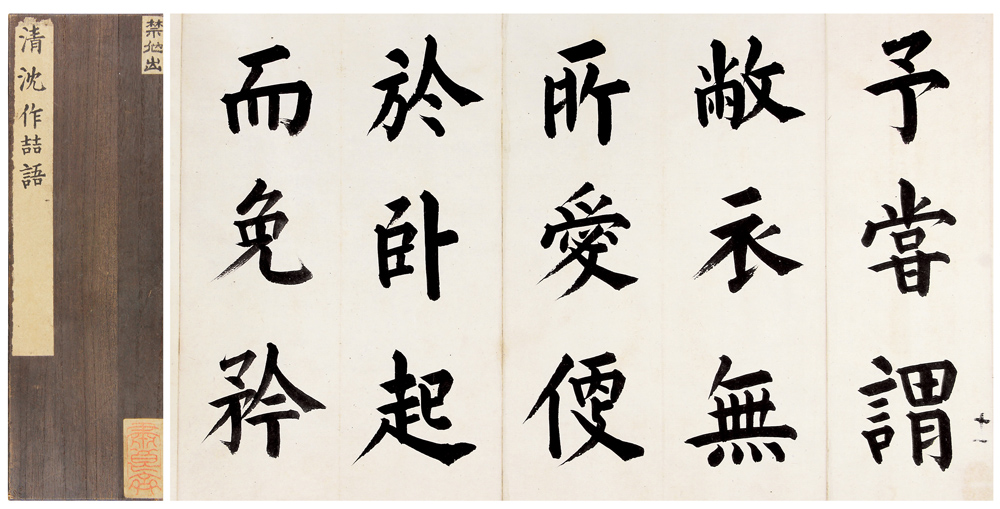 清沈作喆語
予嘗謂
敝衣無
所愛便
於卧起
而免矜